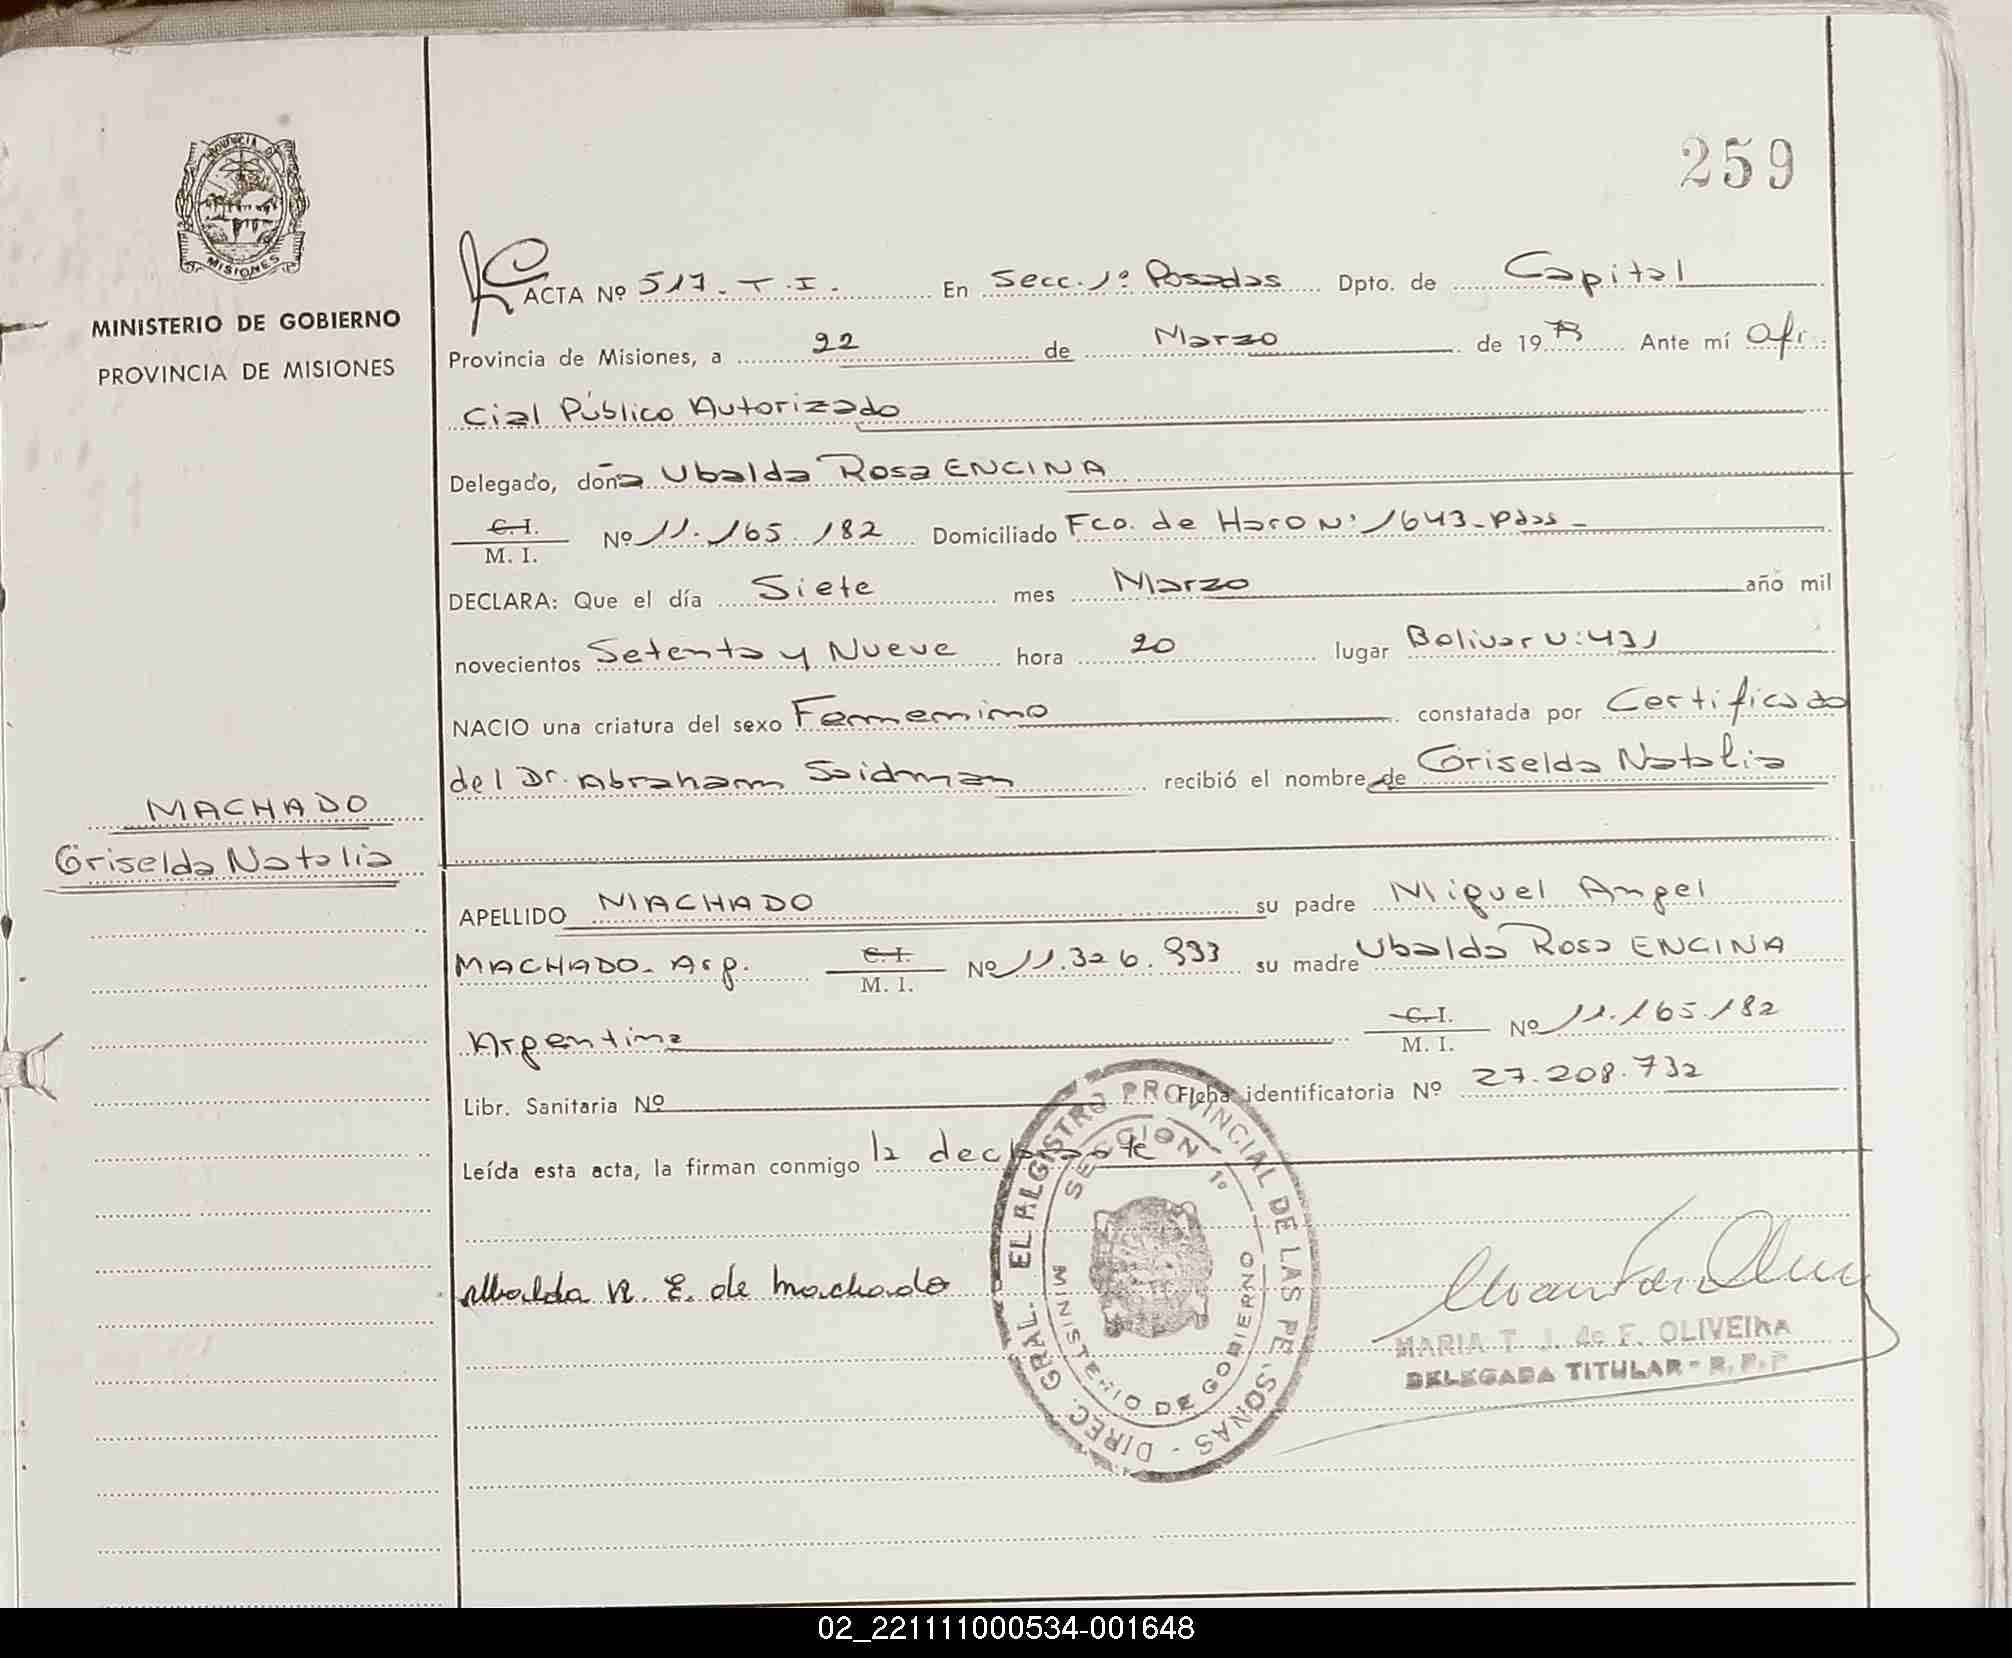 PROVINCIA DE
MISIONES
MINISTERIO DE GOBIERNO
PROVINCIA DE MISIONES
MACHADO
Griselda Natalia
259
ACTA Nº 517. T. I. En Secc. 1º Posadas Dpto. de Capital
Provincia de Misiones, a 22 de Marzo de 19 Ante mí Ofi
cial Público Autorizado
Delegado, doña Ubalda Rosa ENCINA
C.I.
M. I. Nº 11.165.182 Domiciliado Fco. de Haro Nº 1643-Pdas-
DECLARA: Que el día Siete mes Marzo año mil
novecientos Setenta y Nueve hora 20 lugar Bolivar Nº 431
NACIO una criatura del sexo Femenino constatada por Certificado
del Dr. Abraham Saidman recibió el nombre de Griselda Natalia
APELLIDO MACHADO su padre Miguel Angel
MACHADO- Arg. C.I. M. I. Nº 11.326.933 su madre Ubalda Rosa ENCINA
Argentina C.I. M. I. Nº 11.165.182
Libr. Sanitaria Nº Ficha identificatoria Nº 27.208.732
Leída esta acta, la firman conmigo la declarante
Ubalda R. E. de Machado
DIREC. GRAL. EL REGISTRO PROVINCIAL DE LAS PERSONAS -
SECCION 1º
MINISTERIO DE GOBIERNO
MARIA T. J. de F. OLIVEIRA
DELEGADA TITULAR - R. P. P
02_221111000534-001648